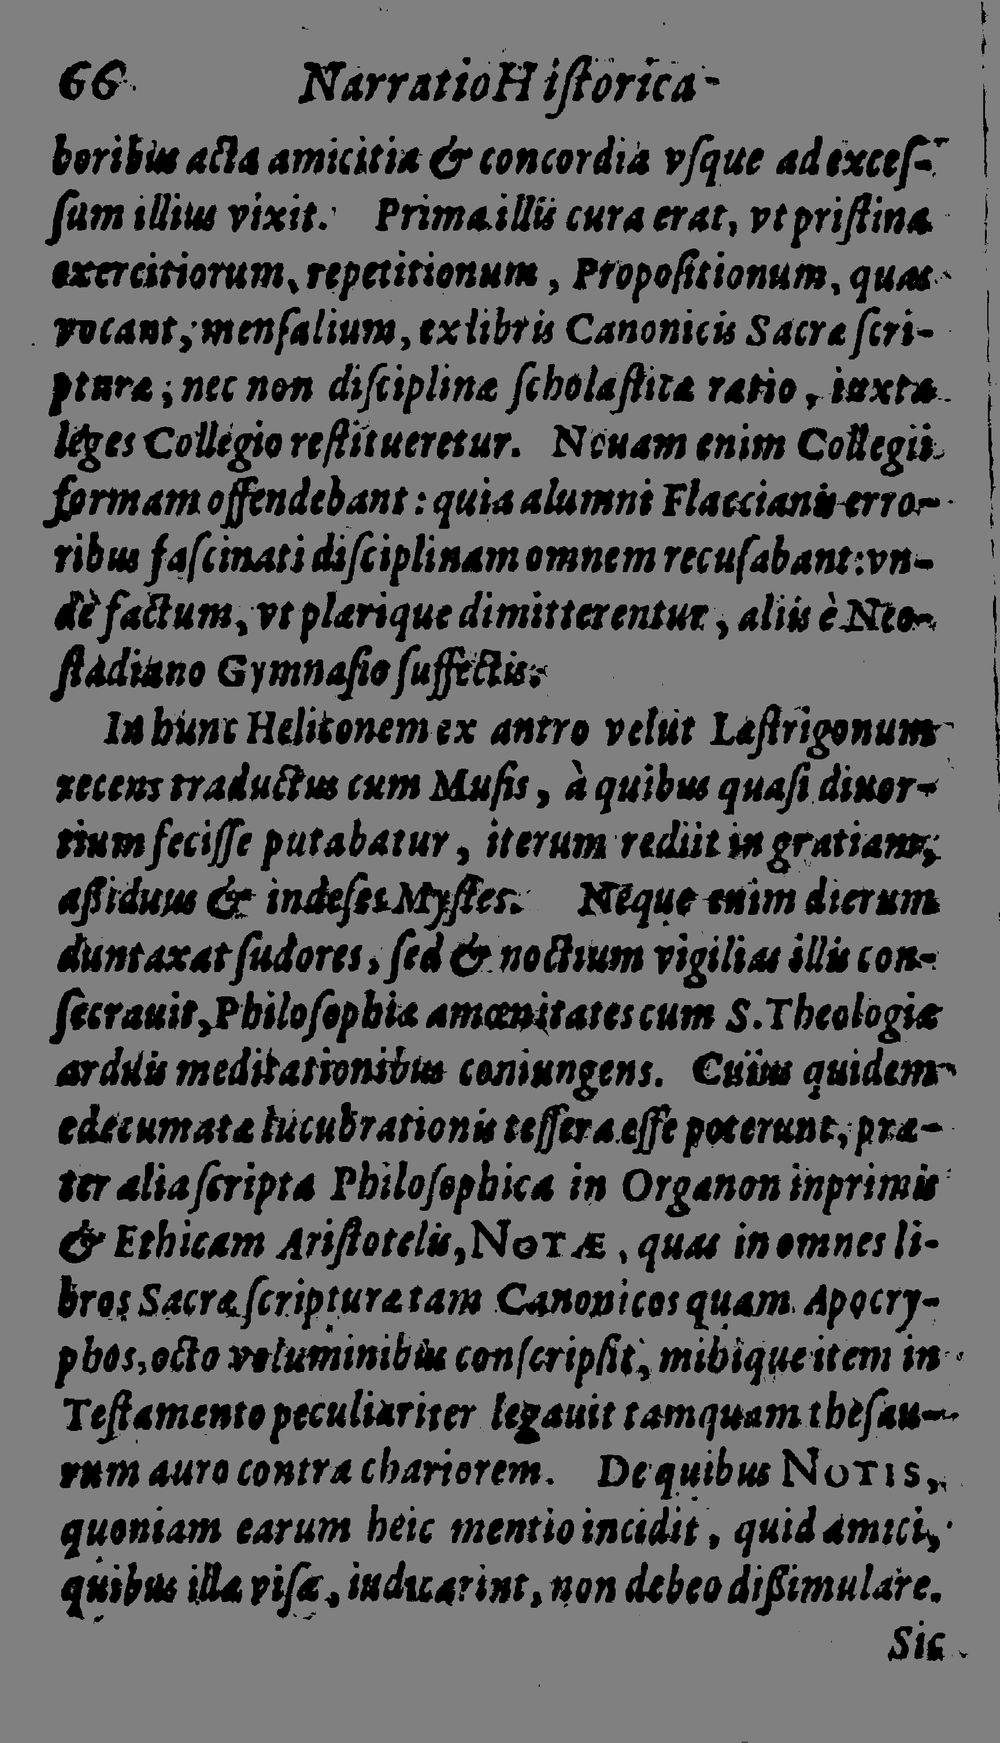 66 Narratio Historica
boribus acta amicitia & concordia vsque ad exces-
sum illius vixit. Prima illis cura erat, vt pristina
exercitiorum, repetitionum, Propositionum, quas
vocant, mensalium, ex libris Canonicis Sacræ scri-
pturæ; nec non disciplinæ scholasticæ ratio, iuxta
leges Collegio restitueretur. Nouam enim Collegii
formam offendebant: quia alumni Flaccianis erro-
ribus fascinati disciplinam omnem recusabant: vn-
dè factum, vt plærique dimitterentur, aliis è Neo-
stadiano Gymnasio suffectis.
In hunc Heliconem ex antro velut Læstrigonum
recens traductus cum Musis, à quibus quasi diuor-
tium fecisse putabatur, iterum rediit in gratiam,
aßiduus & indeses Mystes. Neque enim dierum
duntaxat sudores, sed & noctium vigilias illis con-
secrauit, Philosophiæ amœnitates cum S. Theologiæ
arduis meditationibus coniungens. Cuius quidem
edecumatæ lucubrationis tessera esse poterunt, præ-
ter alia scripta Philosophica in Organon inprimis
& Ethicam Aristotelis, NOTÆ, quas in omnes li-
bros Sacræ scripturæ tam Canonicos quam Apocry-
phos, octo voluminibus conscripsit, mihique item in
Testamento peculiariter legauit tamquam thesau-
rum auro contra chariorem. De quibus NOTIS,
quoniam earum heic mentio incidit, quid amici,
quibus illæ visæ, iudicarint, non debeo dißimulare.
Sic